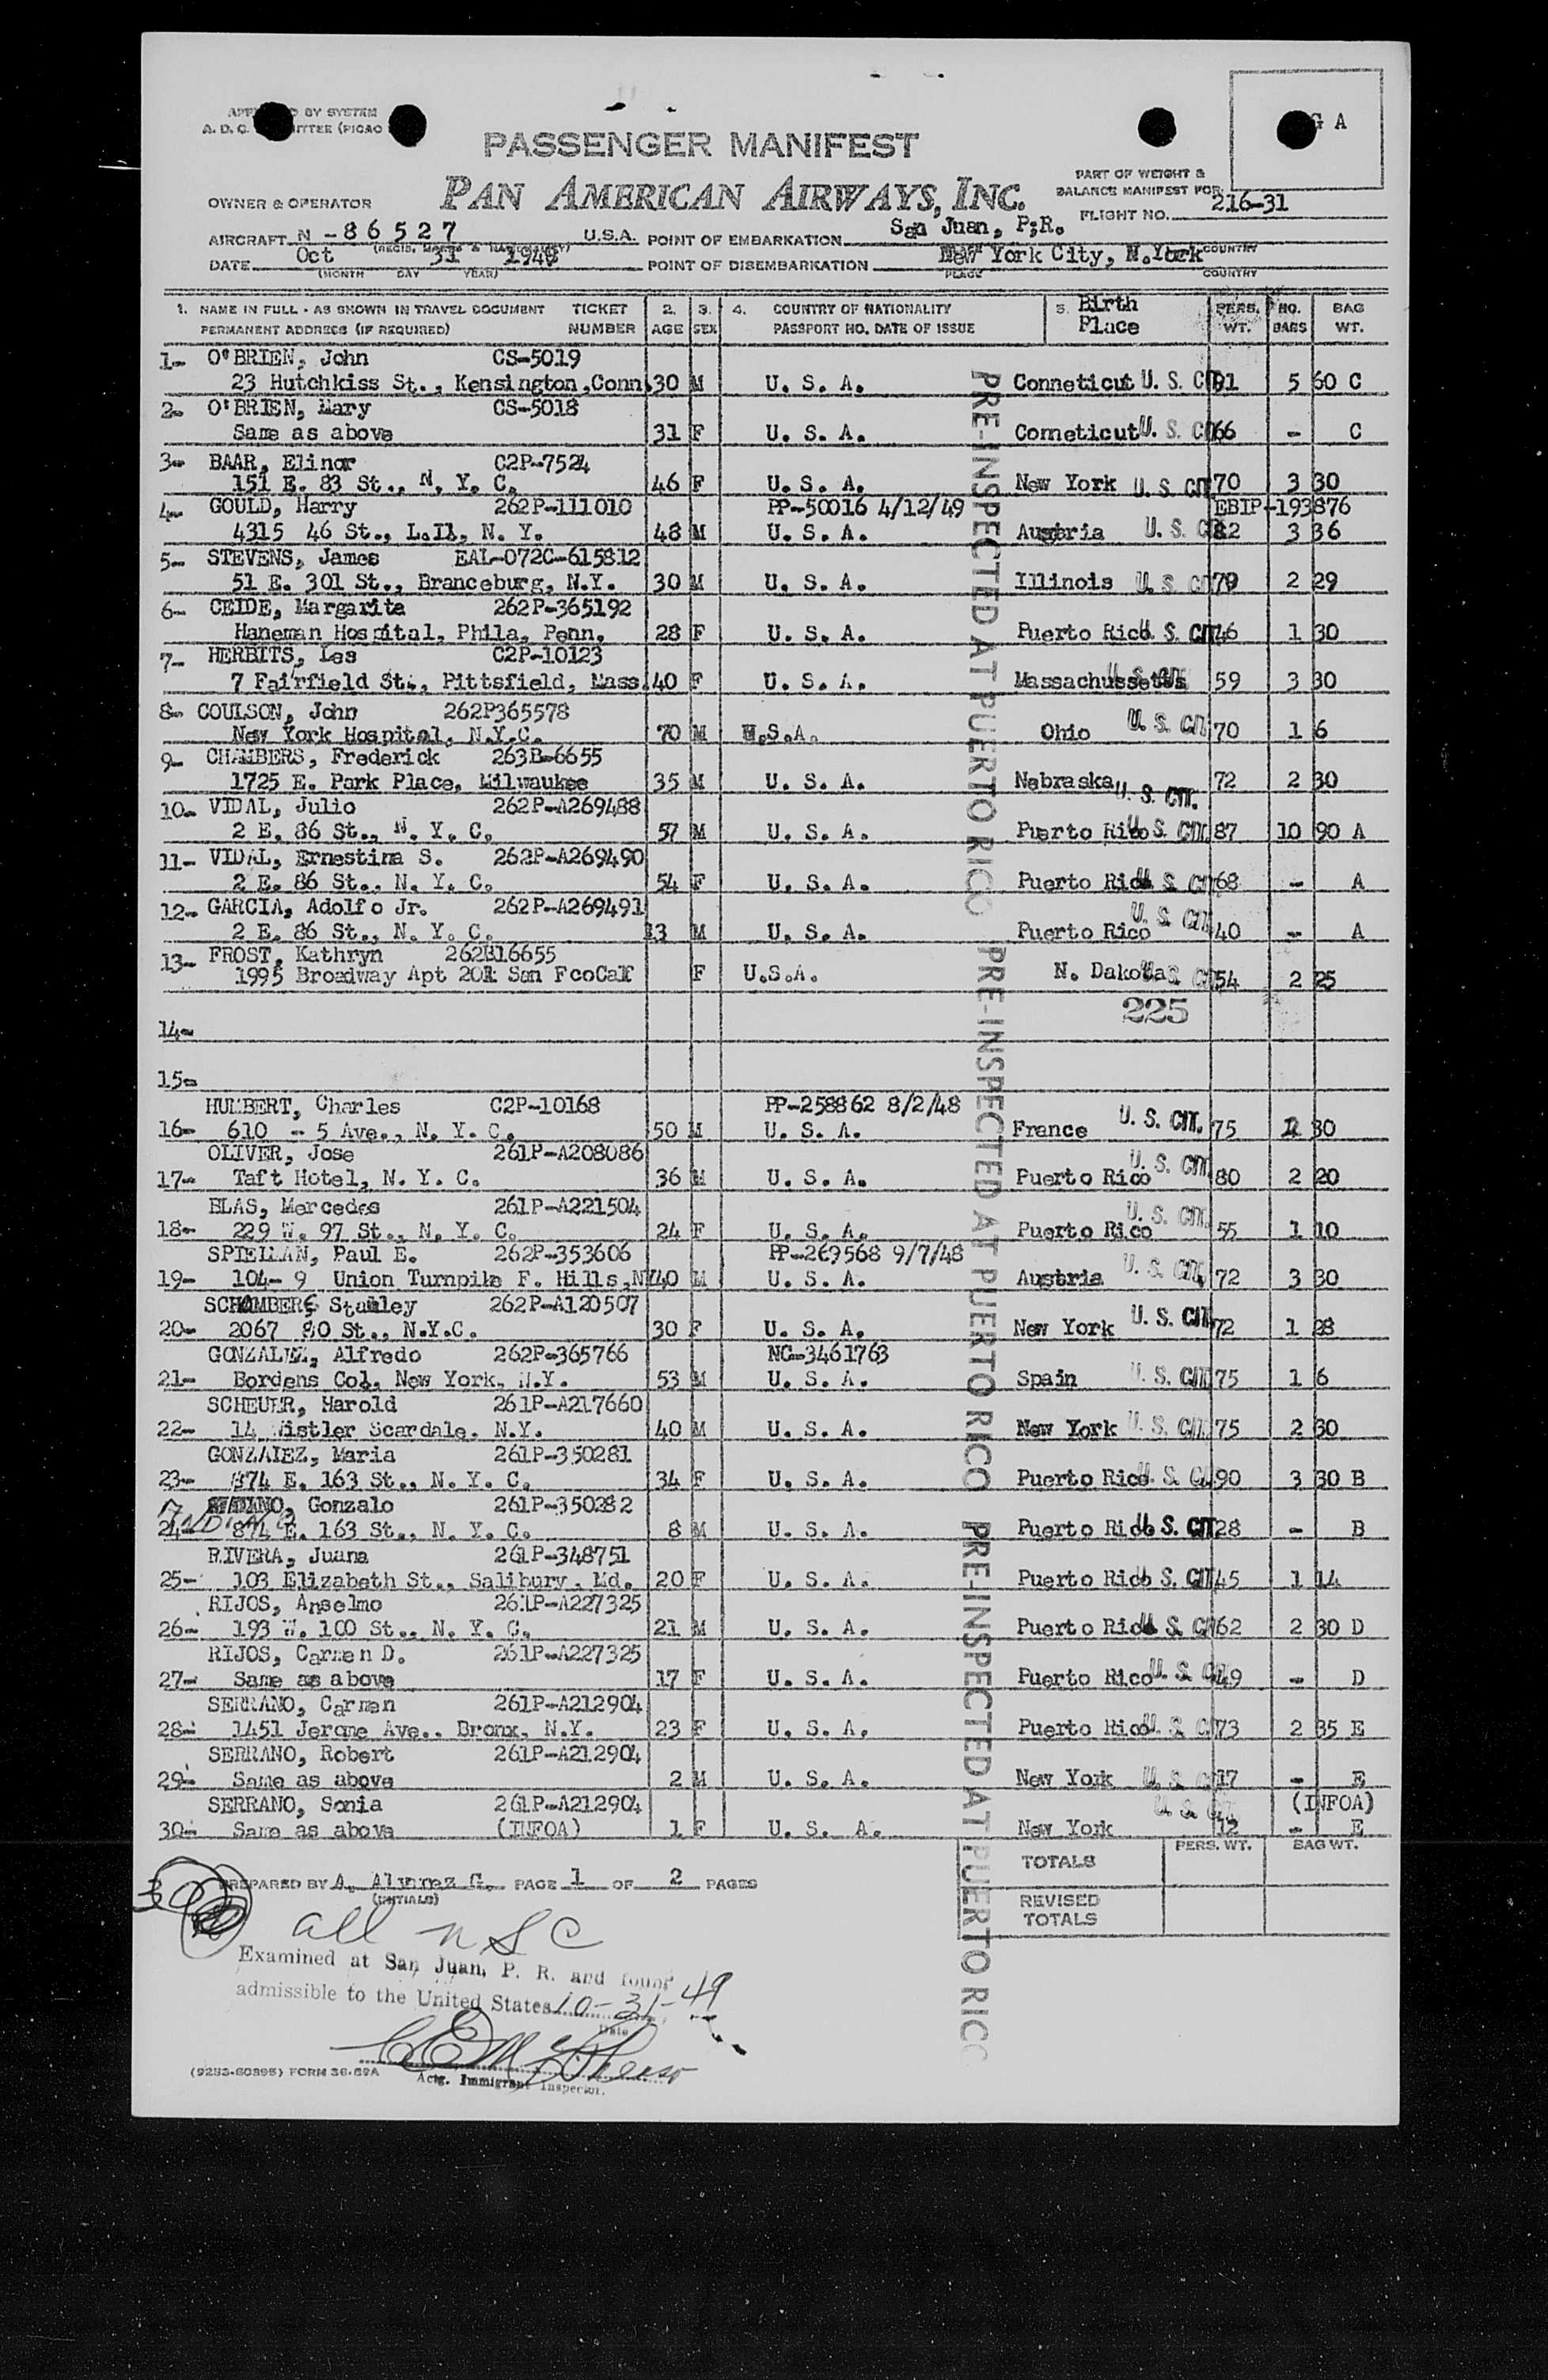 BY SYSTEM
A. D. C. (PICAO
G A
PASSENGER MANIFEST
PART OF WEIGHT &
BALANCE MANIFEST FOR
OWNER & OPERATOR PAN AMERICAN AIRWAYS, INC.
FLIGHT NO. 216-31
AIRCRAFT N -86527 U.S.A. POINT OF EMBARKATION San Juan, P;R.
COUNTRY
DATE Oct 31 POINT OF DISEMBARKATION New York City, N.York
(MONTH DAY YEAR) PLACE COUNTRY
1. NAME IN FULL - AS SHOWN IN TRAVEL DOCUMENT TICKET 2. 3. 4. COUNTRY OF NATIONALITY 5. Birth PERS. NO. BAG
PERMANENT ADDRESS (IF REQUIRED) NUMBER AGE SEX PASSPORT NO. DATE OF ISSUE Place WT. BAGS WT.
1- O'BRIEN, John CS-5019
23 Hutchkiss St., Kensington,Conn. 30 M U. S. A. Conneticut U. S. CIT 91 5 60 C
2- O'BRIEN, Mary CS-5018
Same as above 31 F U. S. A. Corneticut U. S. CIT 66 - C
3- BAAR, Elinor C2P-7524
151 E. 83 St., N. Y. C. 46 F U. S. A. New York U. S. CIT 70 3 30
4- GOULD, Harry 262P-111010 PP-50016 4/12/49 EBIP-193876
4315 46 St., L.I., N. Y. 48 M U. S. A. Austria U. S. CIT 82 3 36
5- STEVENS, James EAL-072C-615812
51 E. 301 St., Branceburg, N.Y. 30 M U. S. A. Illinois U. S. CIT 79 2 29
6- CEIDE, Margarita 262P-365192
Haneman Hospital, Phila, Penn. 28 F U. S. A. Puerto Rico U. S. CIT 46 1 30
7- HERBITS, Les C2P-10123
7 Fairfield St., Pittsfield, Mass. 40 F U. S. A. Massachussetts U. S. CIT 59 3 30
8- COULSON, John 262P365578
New York Hospital, N.Y.C. 70 M U.S.A. Ohio U. S. CIT 70 1 6
9- CHAMBERS, Frederick 263B-6655
1725 E. Park Place, Milwaukee 35 M U. S. A. Nebraska U. S. CIT. 72 2 30
10- VIDAL, Julio 262P-A269488
2 E. 86 St., N. Y. C. 57 M U. S. A. Puerto Rico U. S. CIT. 87 10 90 A
11- VIDAL, Ernestina S. 262P-A269490
2 E. 86 St., N. Y. C. 54 F U. S. A. Puerto Rico U. S. CIT 68 - A
12- GARCIA, Adolfo Jr. 262P-A269491
2 E. 86 St., N. Y. C. 13 M U. S. A. Puerto Rico U. S. CIT. 40 - A
13- FROST, Kathryn 262B16655
1995 Broadway Apt 201 San FcoCalf F U.S.A. N. Dakota U. S. CIT 54 2 25
225
14-
15-
HUMBERT, Charles C2P-10168 PP-258862 8/2/48
16- 610 - 5 Ave., N. Y. C. 50 M U. S. A. France U. S. CIT. 75 30
OLIVER, Jose 261P-A208086
17- Taft Hotel, N. Y. C. 36 M U. S. A. Puerto Rico U. S. CIT 80 2 20
BLAS, Mercedes 261P-A221504
18- 229 W. 97 St., N. Y. C. 24 F U. S. A. Puerto Rico U. S. CIT. 55 1 10
SPIELMAN, Paul E. 262P-353606 PP-269568 9/7/48
19- 104- 9 Union Turnpike F. Hills,NY 40 M U. S. A. Austria U. S. CIT. 72 3 30
Stanley 262P-A120507
20- 2067 80 St., N.Y.C. 30 F U. S. A. New York U. S. CIT. 72 1 28
GONZALEZ, Alfredo 262P-365766 NC-3461763
21- Bordens Col. New York, N.Y. 53 M U. S. A. Spain U. S. CIT 75 1 6
SCHEUER, Harold 261P-A217660
22- 14 Wistler Scardale. N.Y. 40 M U. S. A. New York U. S. CIT. 75 2 30
GONZALEZ, Maria 261P-350281
23- 874 E. 163 St., N. Y. C. 34 F U. S. A. Puerto Rico U. S. CIT. 90 3 30 B
Gonzalo 261P-350282
24- 874 E. 163 St., N. Y. C. 8 M U. S. A. Puerto Rico U. S. CIT 28 - B
RIVERA, Juana 261P-348751
25- 103 Elizabeth St., Salibury, Md. 20 F U. S. A. Puerto Rico U. S. CIT 45 1 14
RIJOS, Anselmo 261P-A227325
26- 193 W. 100 St., N. Y. C. 21 M U. S. A. Puerto Rico U. S. CIT 62 2 30 D
RIJOS, Carmen D. 261P-A227325
27- Same as above 17 F U. S. A. Puerto Rico U. S. CIT 49 - D
SERRANO, Carmen 261P-A212904
28- 1451 Jerome Ave., Bronx, N.Y. 23 F U. S. A. Puerto Rico U. S. CIT 73 2 35 E
SERRANO, Robert 261P-A212904
29- Same as above 2 M U. S. A. New York U. S. CIT 17 - E
SERRANO, Sonia 261P-A212904 U. S. CIT (INFOA)
30- Same as above (INFOA) 1 F U. S. A. New York 12 - E
PRE-INSPECTED AT PUERTO RICO
PRE-INSPECTED AT PUERTO RICO
PRE-INSPECTED AT PUERTO RICO
PERS. WT. BAG WT.
TOTALS
REVISED
TOTALS
30
PREPARED BY A. Alvarez G. PAGE 1 OF 2 PAGES
(INITIALS)
all U S C
Examined at San Juan, P. R. and found
admissible to the United States 10-31-49
Date
Actg. Immigrant Inspector.
(9283-60395) FORM 36-69A